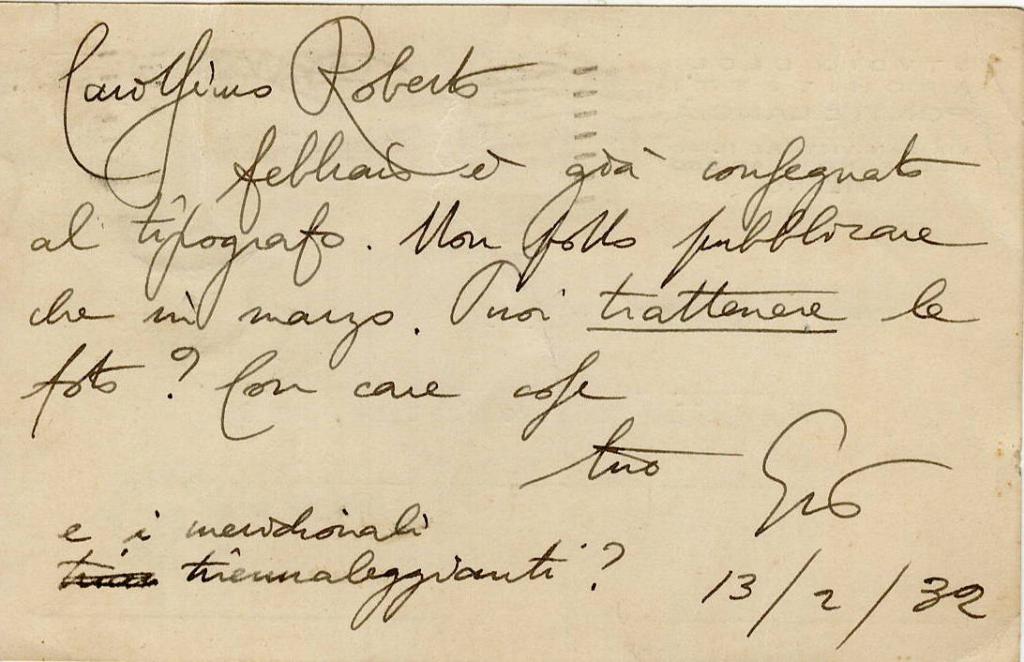 Carissimo Roberto
febbraio è già consegnato
al tipografo. Non posso pubblicare
che in marzo. Puoi trattenere le
foto? Con care cose
tuo Giò
e i meridionali
triennaleggianti?
13/2/32